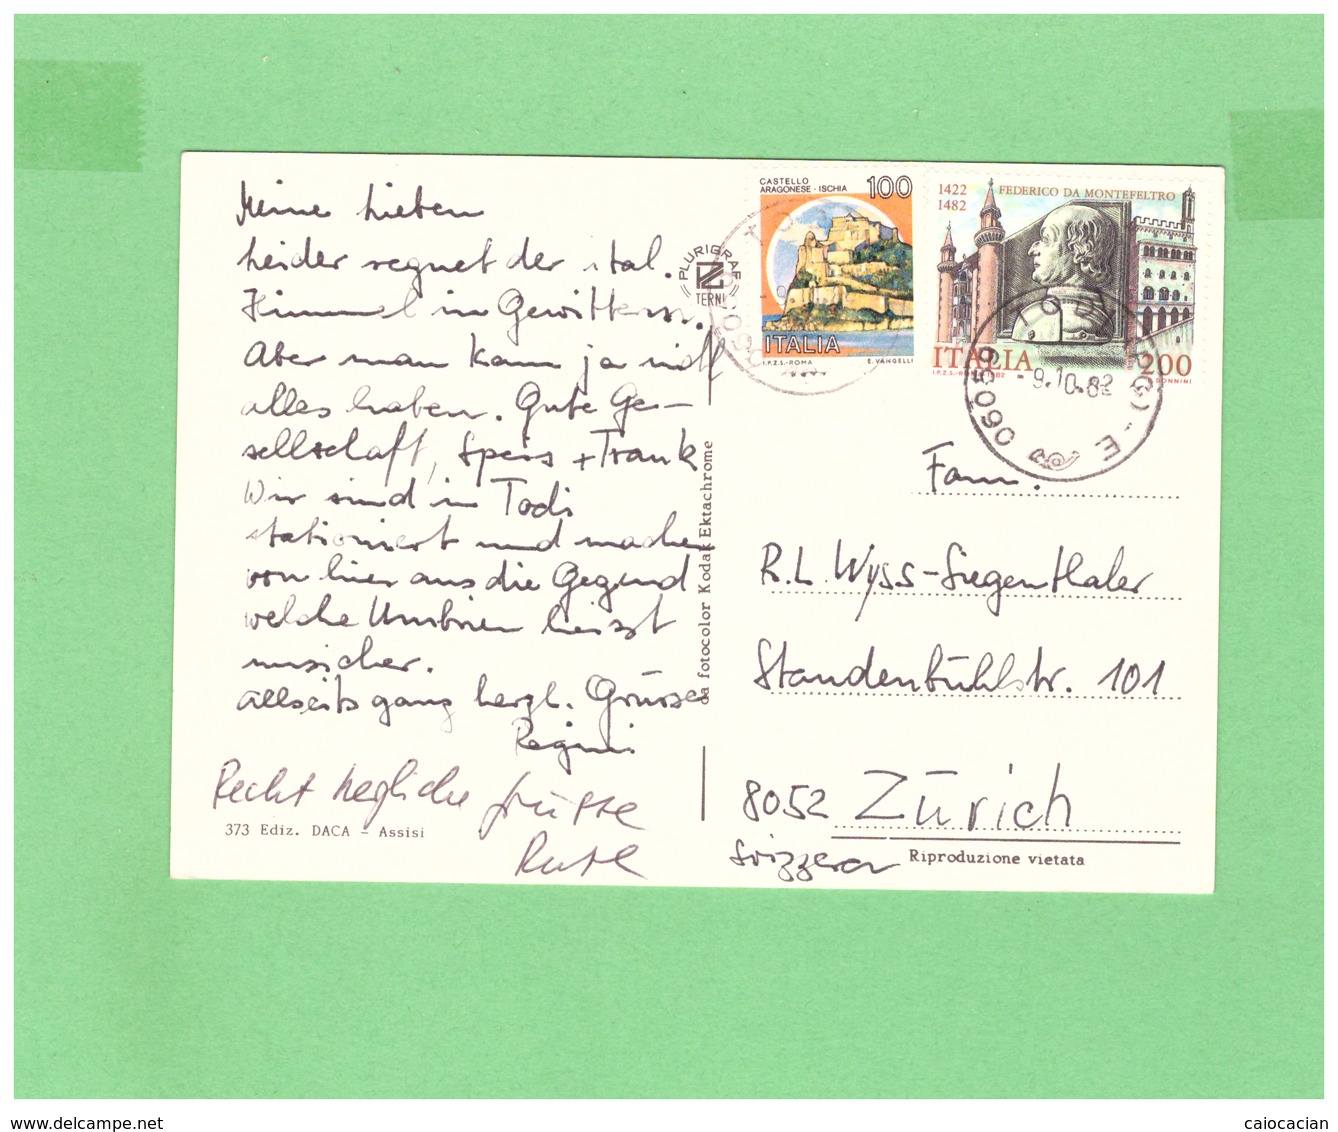 Meine Lieben
Leider regnet der ital.
Himmel in Gewitterss.
Aber man kann ja nicht
alles haben. Gute Ge-
sellschaft, Speis + Trank
Wir sind in Todi
stationiert und machen
von hier aus die Gegend
welche Umbrien heisst
unsicher.
Allseits ganz herzl. Grüsse
Regini
Recht herzliche Grüsse
Ruth
373 Ediz. DACA - Assisi
PLURIGRAF
TERNI
da fotocolor Kodak Ektachrome
CASTELLO
ARAGONESE - ISCHIA 100
ITALIA
I.P.Z.S. - ROMA E. VANGELLI
1422
1482
FEDERICO DA MONTEFELTRO
ITALIA 200
TODI (PG) - E
06059
06059
-9.10.82
Fam.
R.L. Wyss-Siegenthaler
Staudenbühlstr. 101
8052 Zürich
Svizzera
Riproduzione vietata
www.delcampe.net
caiocacian